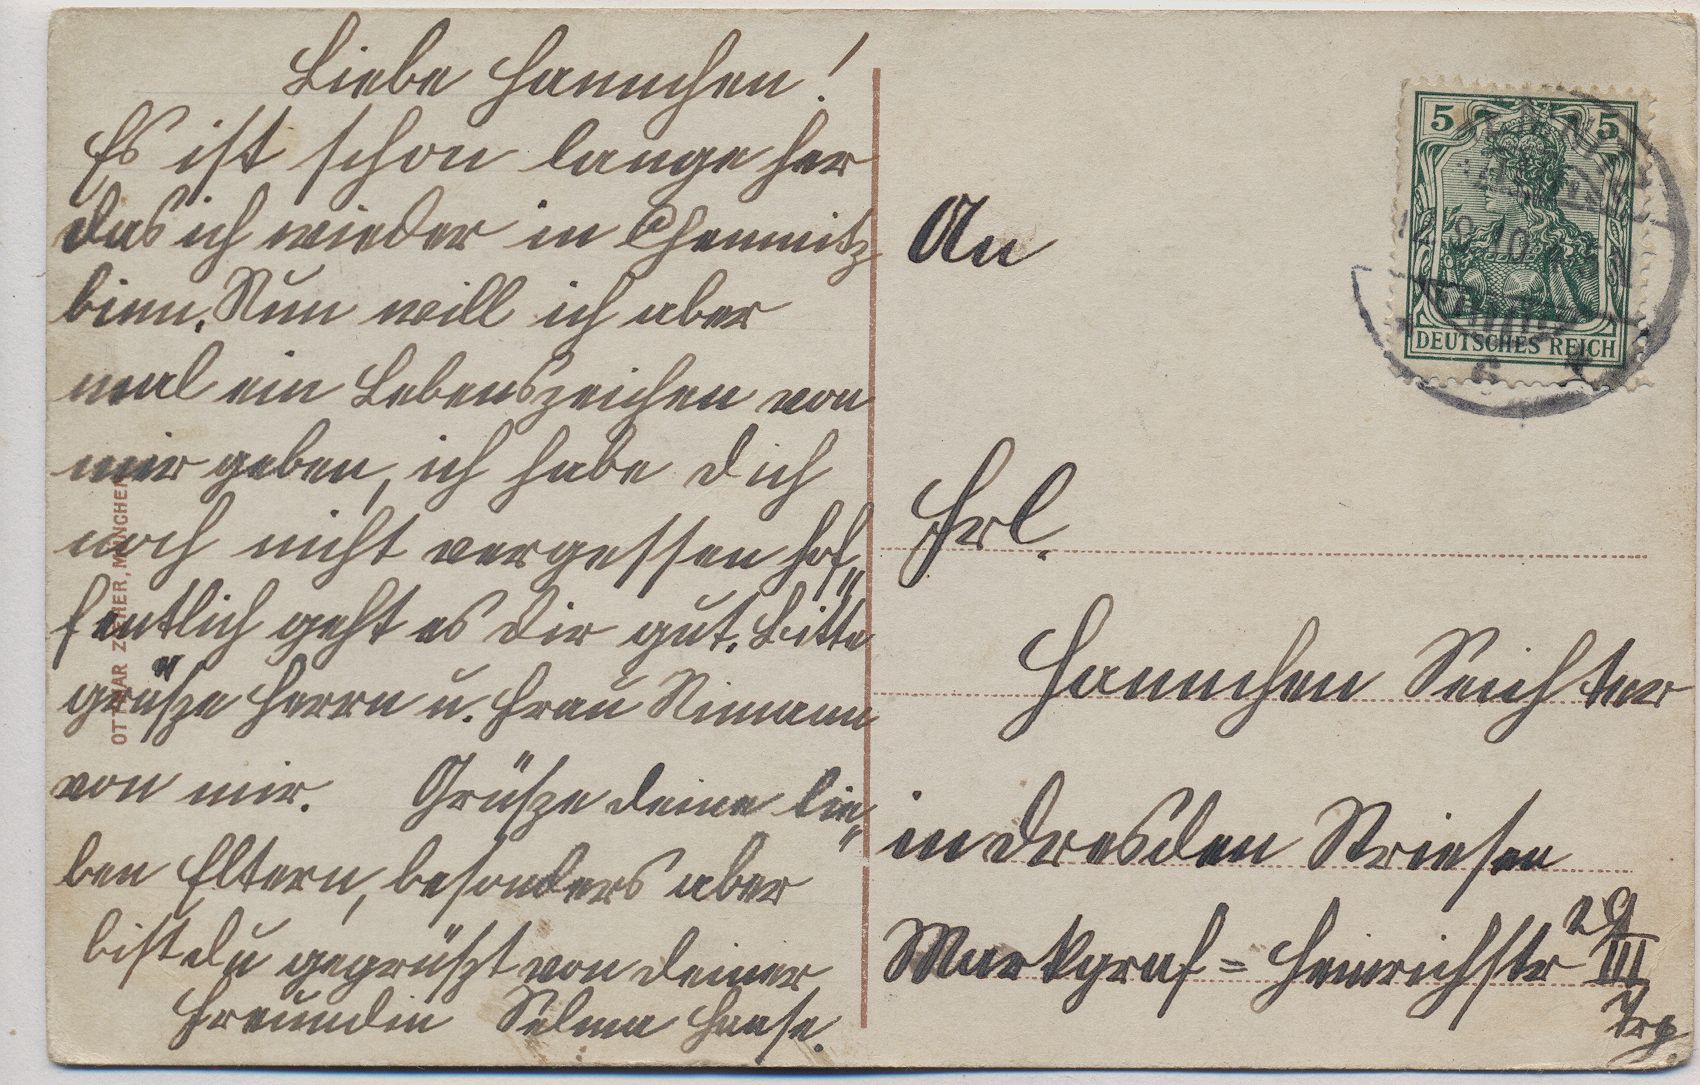 Liebe Hannchen!
Es ist schon lange her
das ich wieder in Chemnitz
binn. Nun will ich aber
mal ein Lebenszeichen von
mir geben, ich habe Dich
noch nicht vergessen hof„
fentlich geht es Dir gut. Bitte
grüße Herrn u. Frau Nimann
von mir. Grüße deine lie„
ben Eltern, besonders aber
bist du gegrüßt von deiner
Freundin Selma Haase.
OTTMAR ZIEHER, MÜNCHEN
5 5
12.9.10.
DEUTSCHES REICH
An
Frl.
Hannchen Seichter
in Dresden Striesen
Markgraf=Heinrichstr 29
III